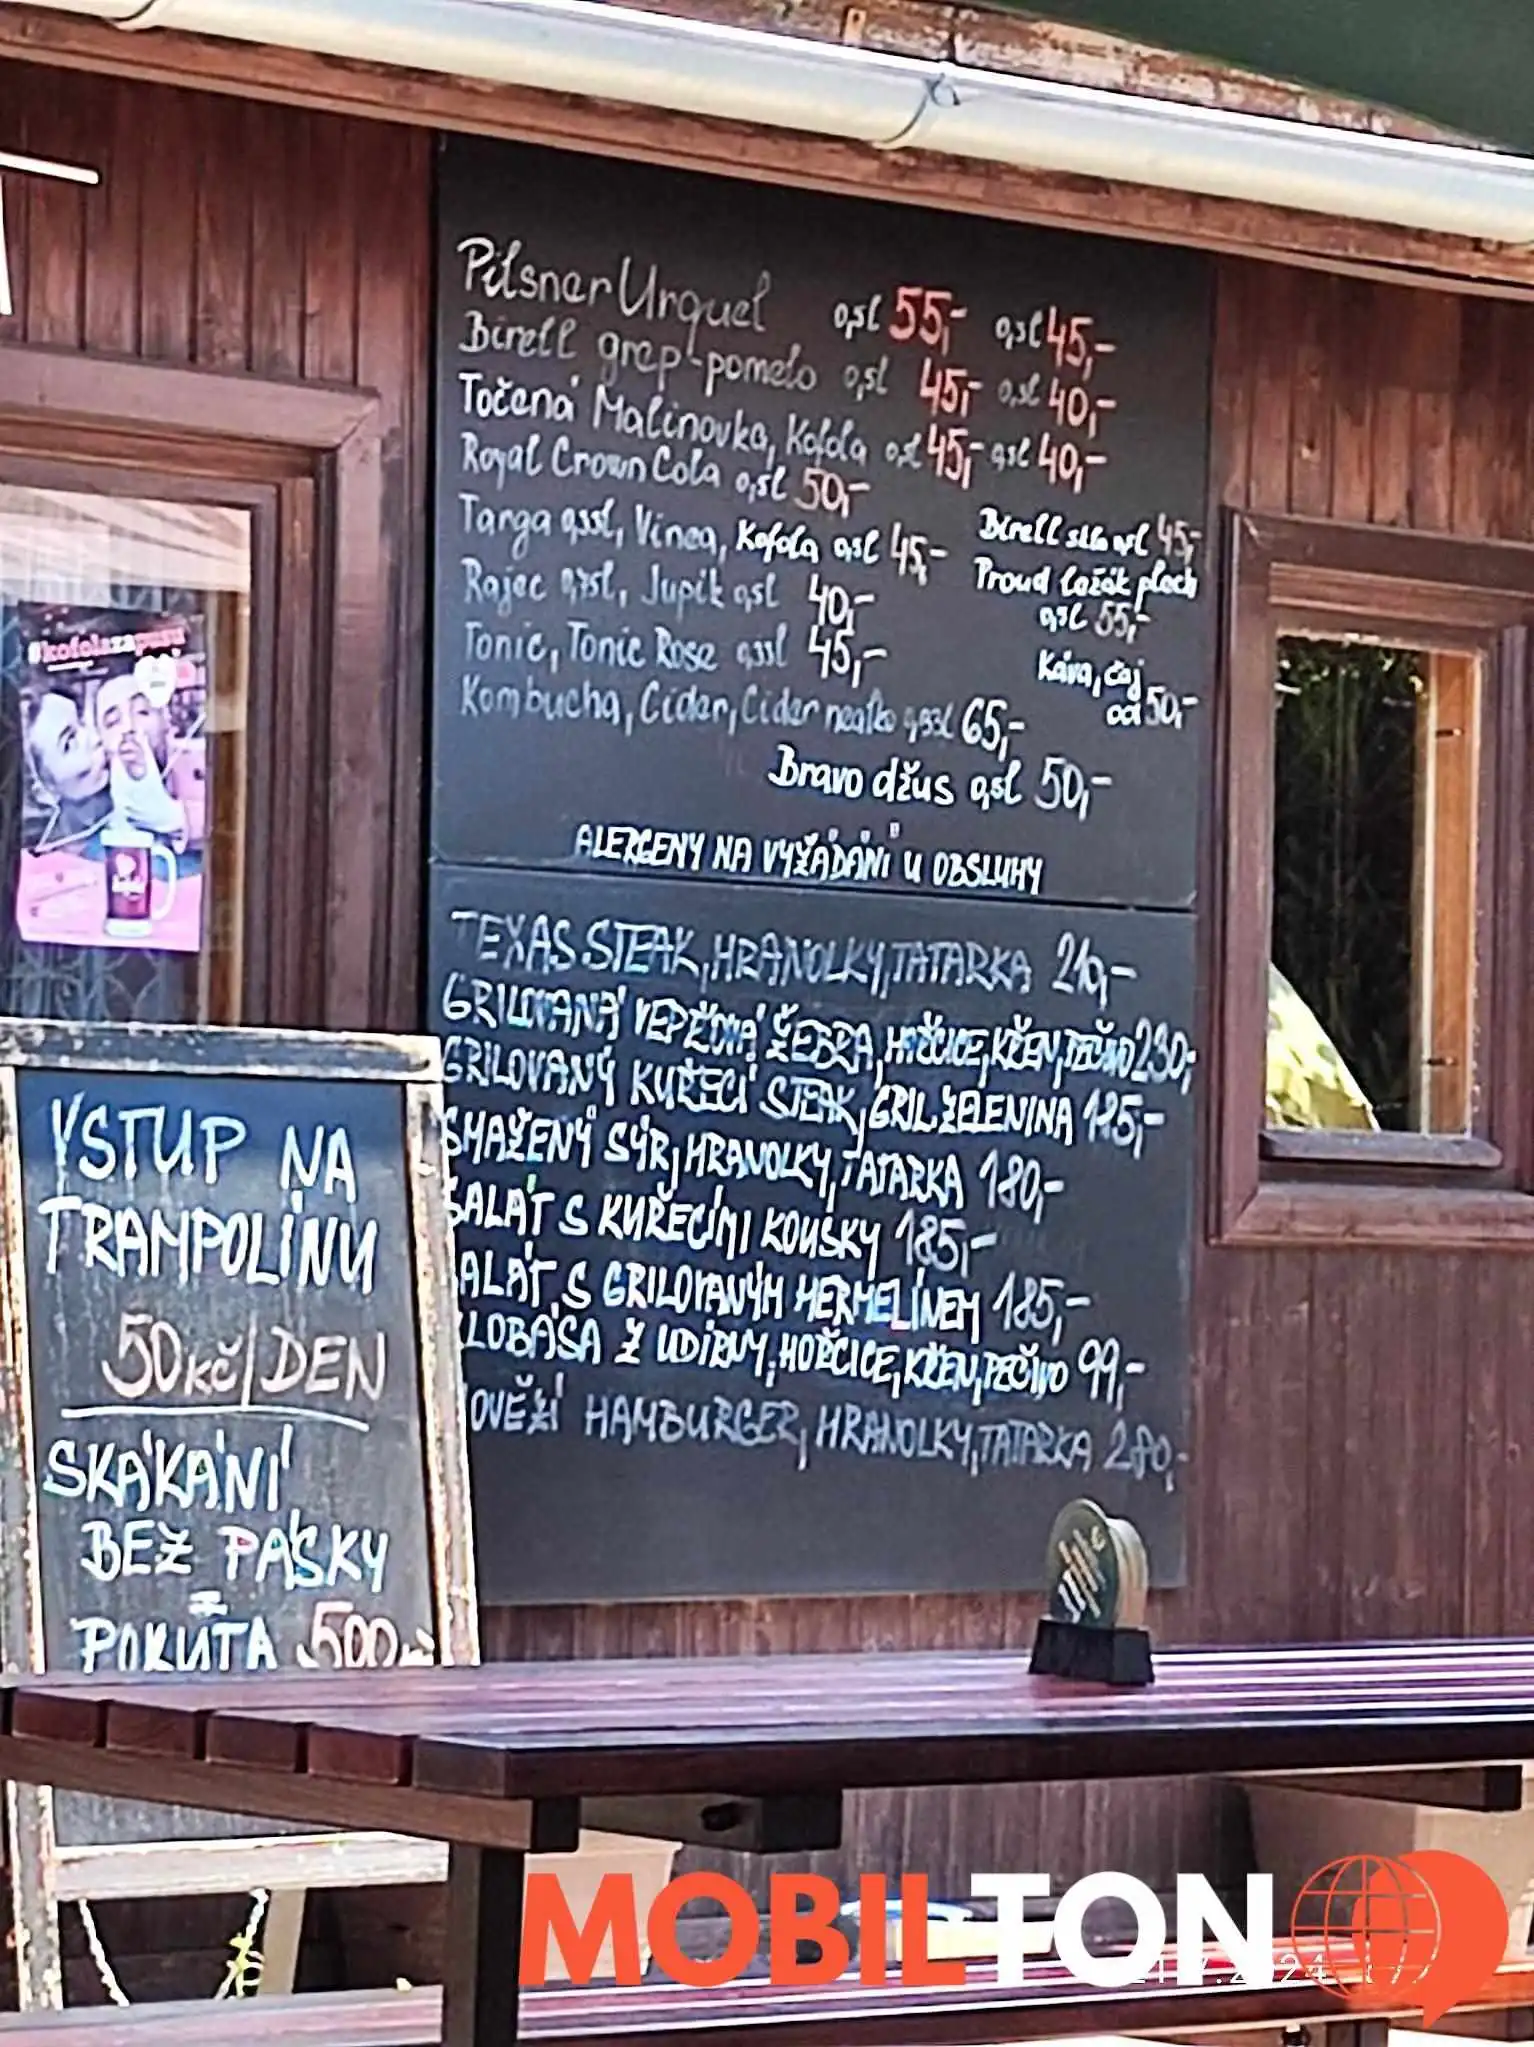 Pilsner Urquel 0,5l 55,- 0,3l 45,-
Birell grep-pomelo 0,5l 45,- 0,3l 40,-
Točená Malinovka, Kofola 0,5l 45,- 0,3l 40,-
Royal Crown Cola 0,5l 50,-
Targa 0,33l, Vinea, Kofola 0,5l 45,-
Rajec 0,75l, Jupík 0,5l 40,-
Tonic, Tonic Rose 0,33l 45,-
Kombucha, Cider, Cider nealko 0,33l 65,-
Birell sklo 0,5l 45,-
Proud ležák plech
0,5l 55,-
Káva, čaj
od 50,-
Bravo džus 0,5l 50,-
ALERGENY NA VYŽÁDÁNÍ U OBSLUHY
TEXAS STEAK, HRANOLKY, TATARKA 210,-
GRILOVANÁ VEPŘOVÁ ŽEBRA, HOŘČICE, KŘEN, PEČIVO 230,-
GRILOVANÝ KUŘECÍ STEAK, GRIL. ZELENINA 185,-
SMAŽENÝ SÝR, HRANOLKY, TATARKA 180,-
SALÁT S KUŘECÍMI KOUSKY 185,-
ALÁT S GRILOVANÝM HERMELÍNEM 185,-
LOBÁSA Z UDÍRNY, HOŘČICE, KŘEN, PEČIVO 99,-
OVĚZÍ HAMBURGER, HRANOLKY, TATARKA 280,-
#kofolazapusu
VSTUP NA
TRAMPOLÍNU
50 KČ/DEN
SKÁKÁNÍ
BEZ PÁSKY
=
POKUTA 500,-
MOBILTON